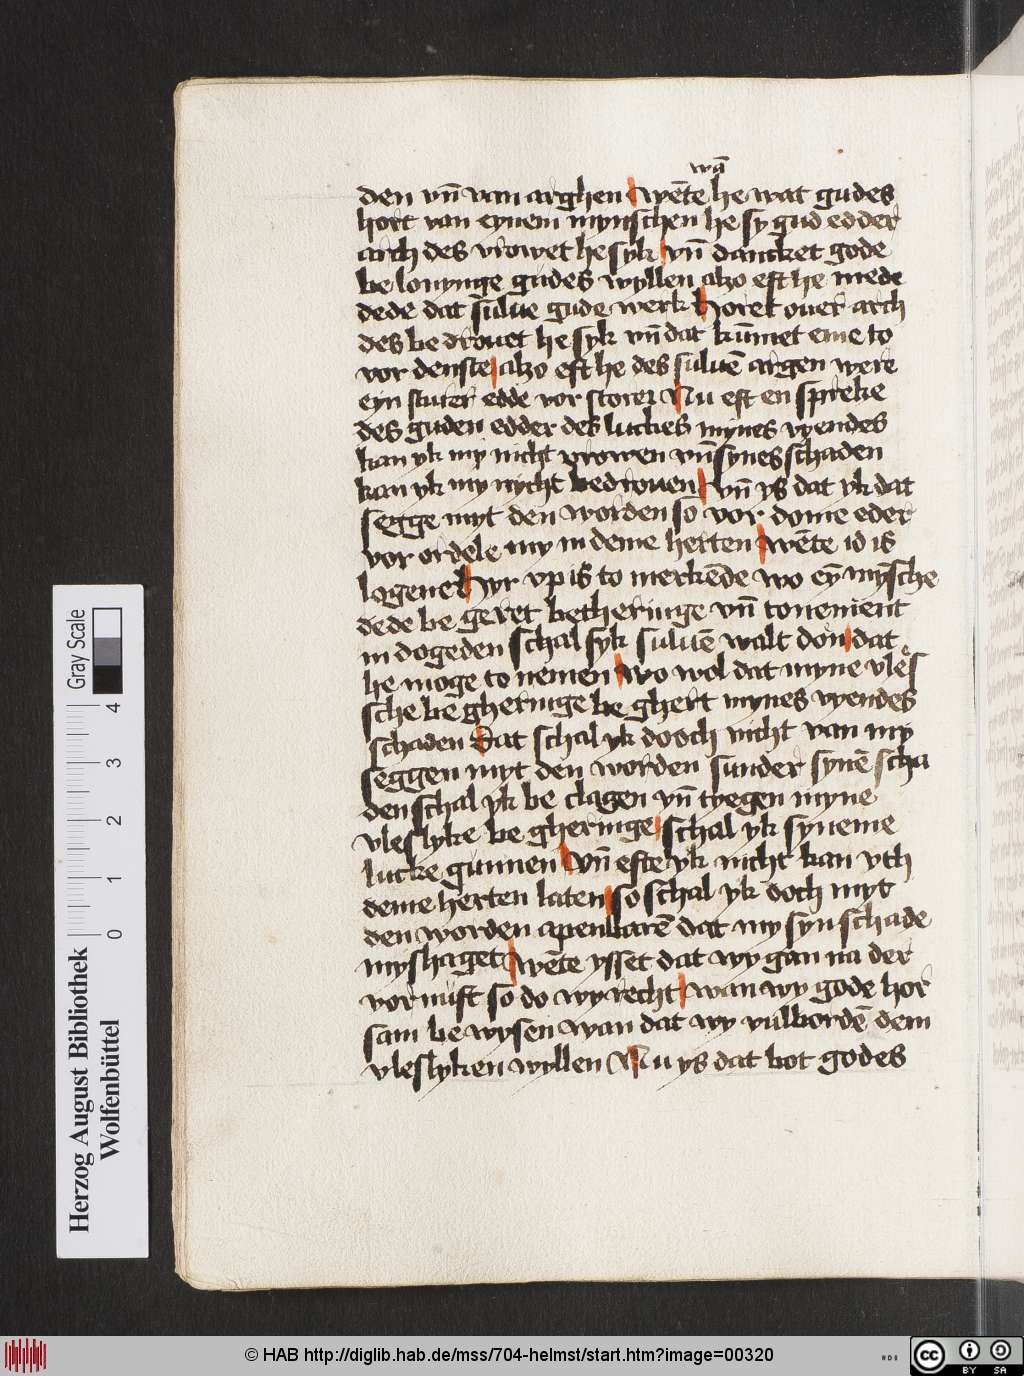 wā
den vn̄ van arghen wēte he wat gudes
hort van eynem mynschen he sy gud edder
arch des vrowet he syk vn̄ dancket gode
be lonynge gudes wyllen alzo eft he mede
dede dat sulue gude werk horet ouer arch
des be drouet he syk vn̄ dat kūmet eme to
vor denste alzo eft he des suluē argen were
eyn sturer edde vor storer Nu eft en spreke
des guden edder des luckes mynes vyendes
kan yk my nicht vrowen vn̄ synes schaden
kan yk my nycht bedrouen vn̄ ys dat yk dat
segge myt den worden so vor dome eder
vor ordele my in deme herten wēte id is
logene Hyr vp is to merkēde wo eȳ mȳsche
dede be geret betheringe vn̄ tonement
in dogeden schal syk suluē walt don dat
he moge to nemen wo wol dat myne vles
sche be gheringe be ghert mynes vyendes
schaden dat schal yk dooch nicht van my
seggen myt den worden sunder synē scha
den schal yk be clagen vn̄ tyegen myne
vleslyke be gheringe schal yk syneme
lucke gunnen vn̄ efte yk nicht kan vth
deme herten laten so schal yk doch myt
den worden apenbarē dat my syn schade
myshaget wēte ysset dat wy gan na der
vornuft so do wy recht wan wy gode hor
sam be wysen wan dat wy vulbordē dem
vleslyken wyllen Nu ys dat bot godes
Herzog August Bibliothek
Wolfenbüttel
Gray Scale
0 1 2 3 4
© HAB http://diglib.hab.de/mss/704-helmst/start.htm?image=00320
HAB
cc BY SA